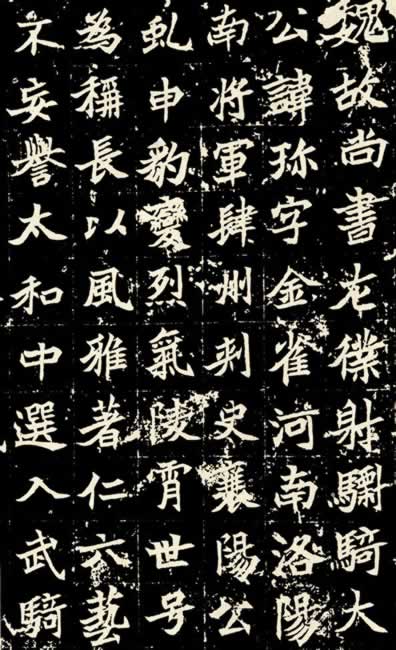 魏故尚書左僕射驃騎大
公諱珎字金雀河南洛陽
南将軍肆州刾史襄陽公
虬申豹變烈氣陵霄世号
為稱長以風雅著仁六藝
不妄譽太和中選入武騎